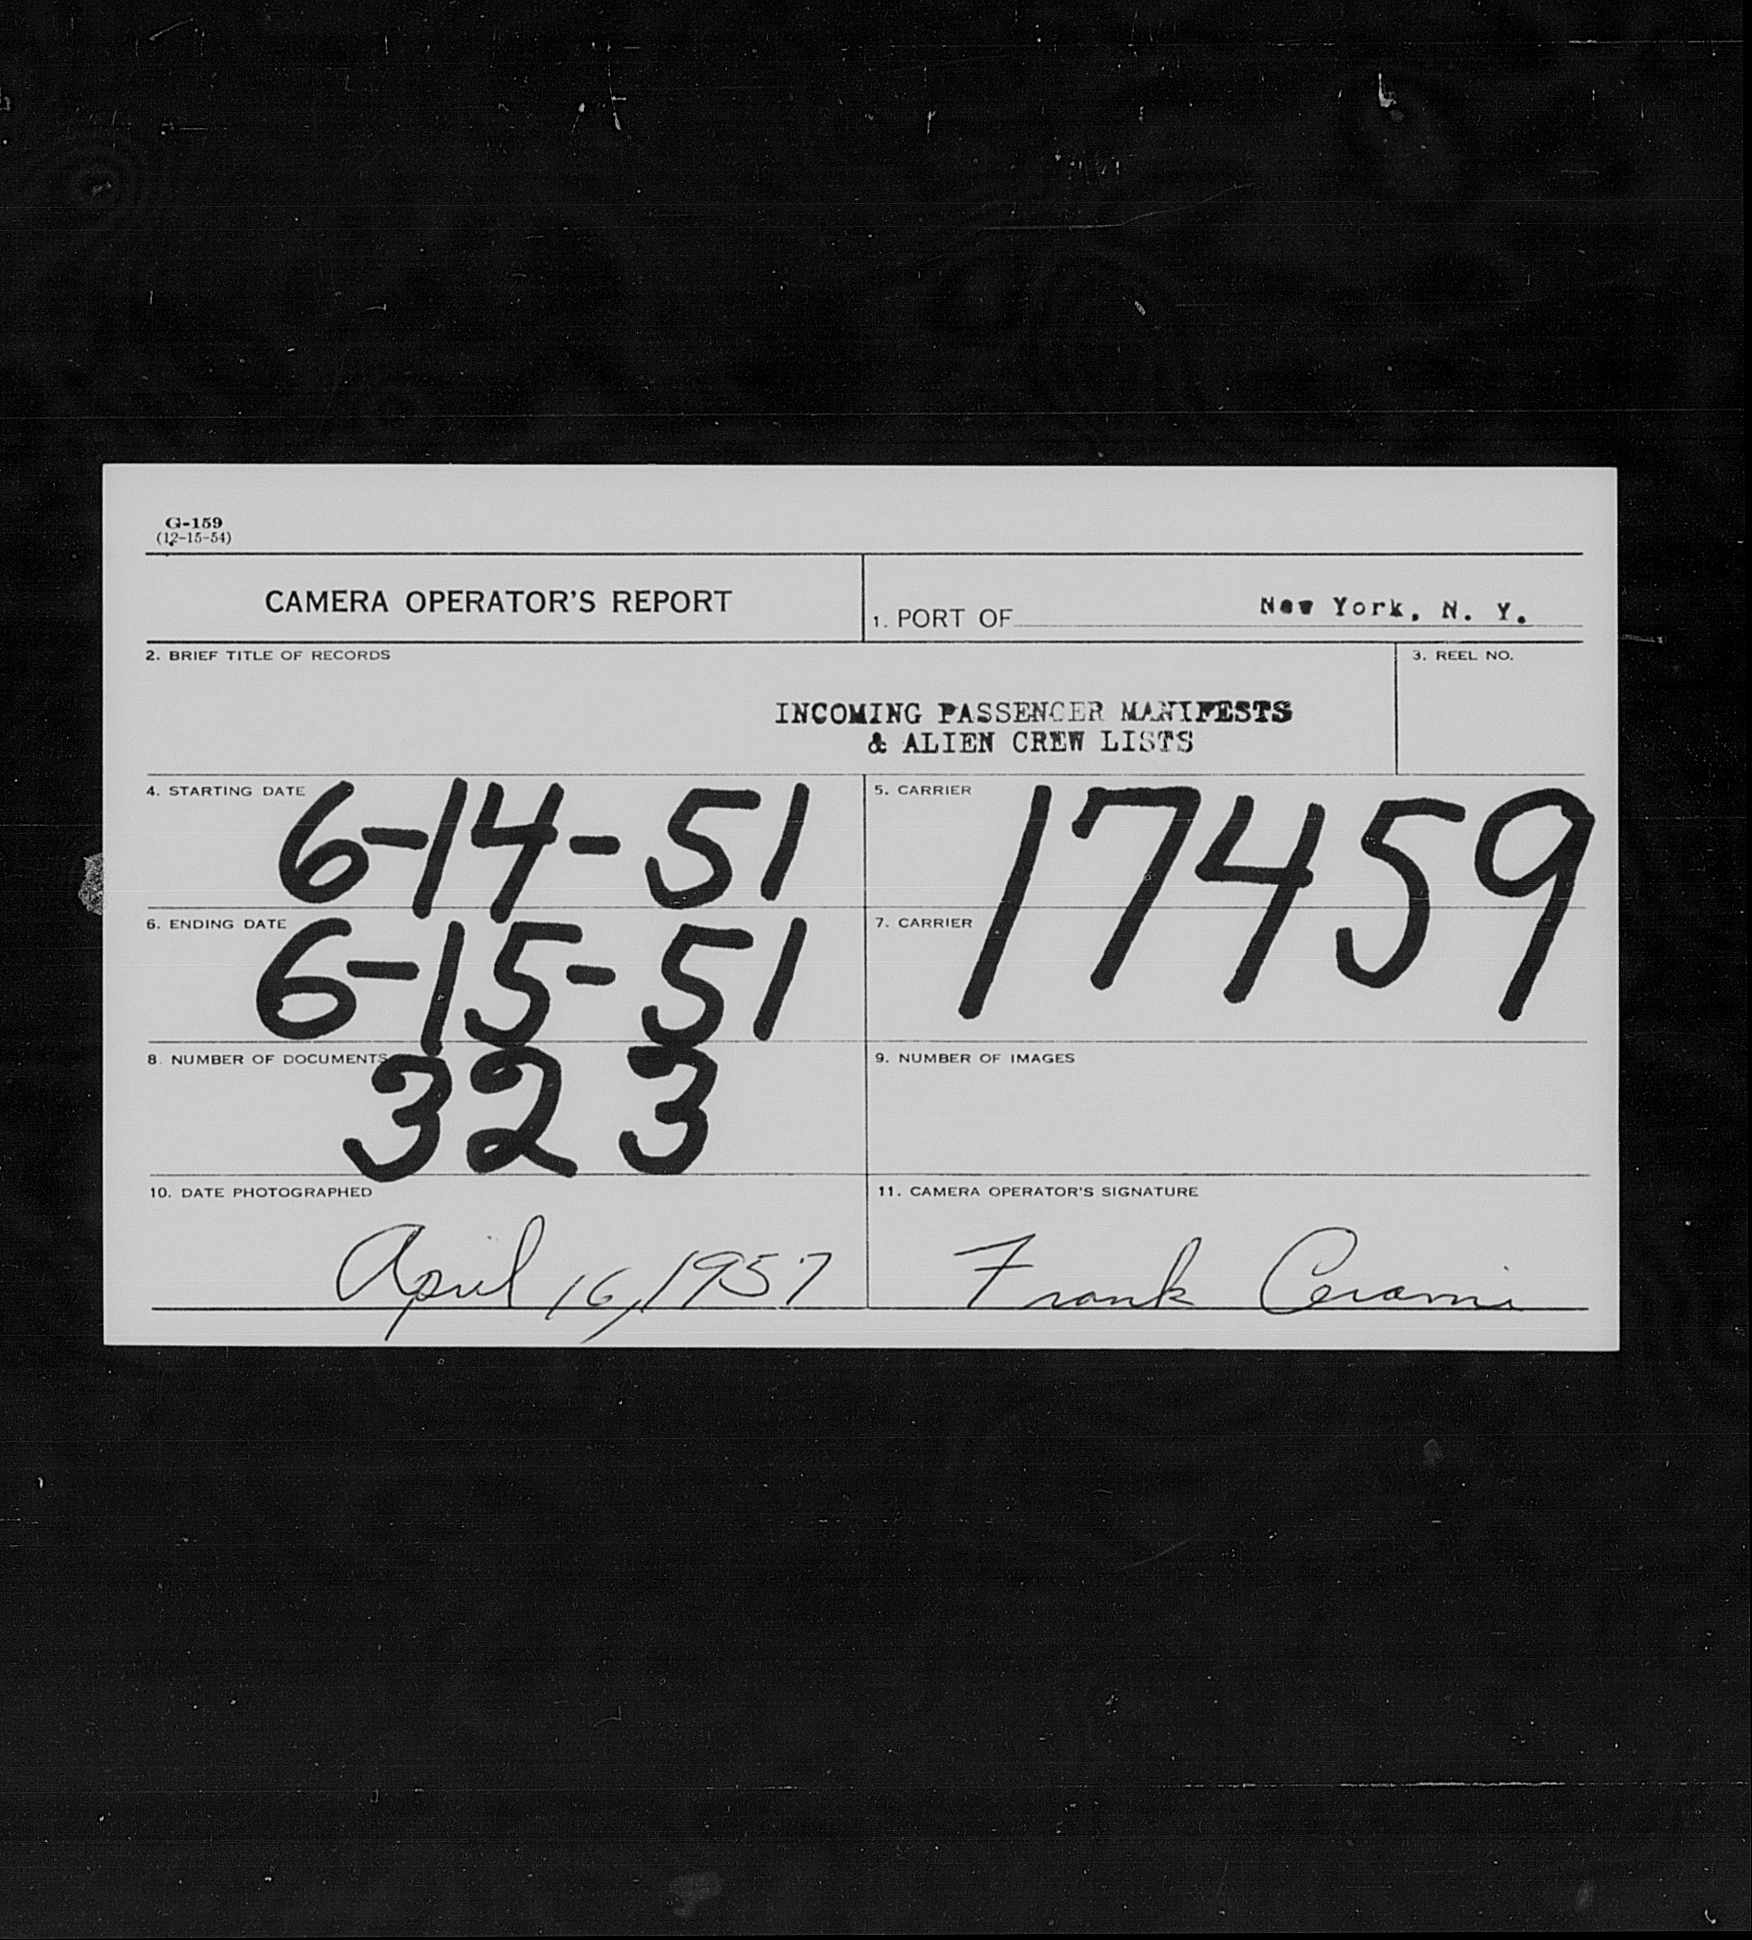 G-159
(12-15-54)
CAMERA OPERATOR'S REPORT
1. PORT OF New York, N. Y.
2. BRIEF TITLE OF RECORDS
3. REEL NO.
INCOMING PASSENGER MANIFESTS
& ALIEN CREW LISTS
4. STARTING DATE 6-14-51
5. CARRIER 17459
6. ENDING DATE 6-15-51
7. CARRIER
8. NUMBER OF DOCUMENTS 323
9. NUMBER OF IMAGES
10. DATE PHOTOGRAPHED
11. CAMERA OPERATOR'S SIGNATURE
April 16, 1957
Frank Cerami